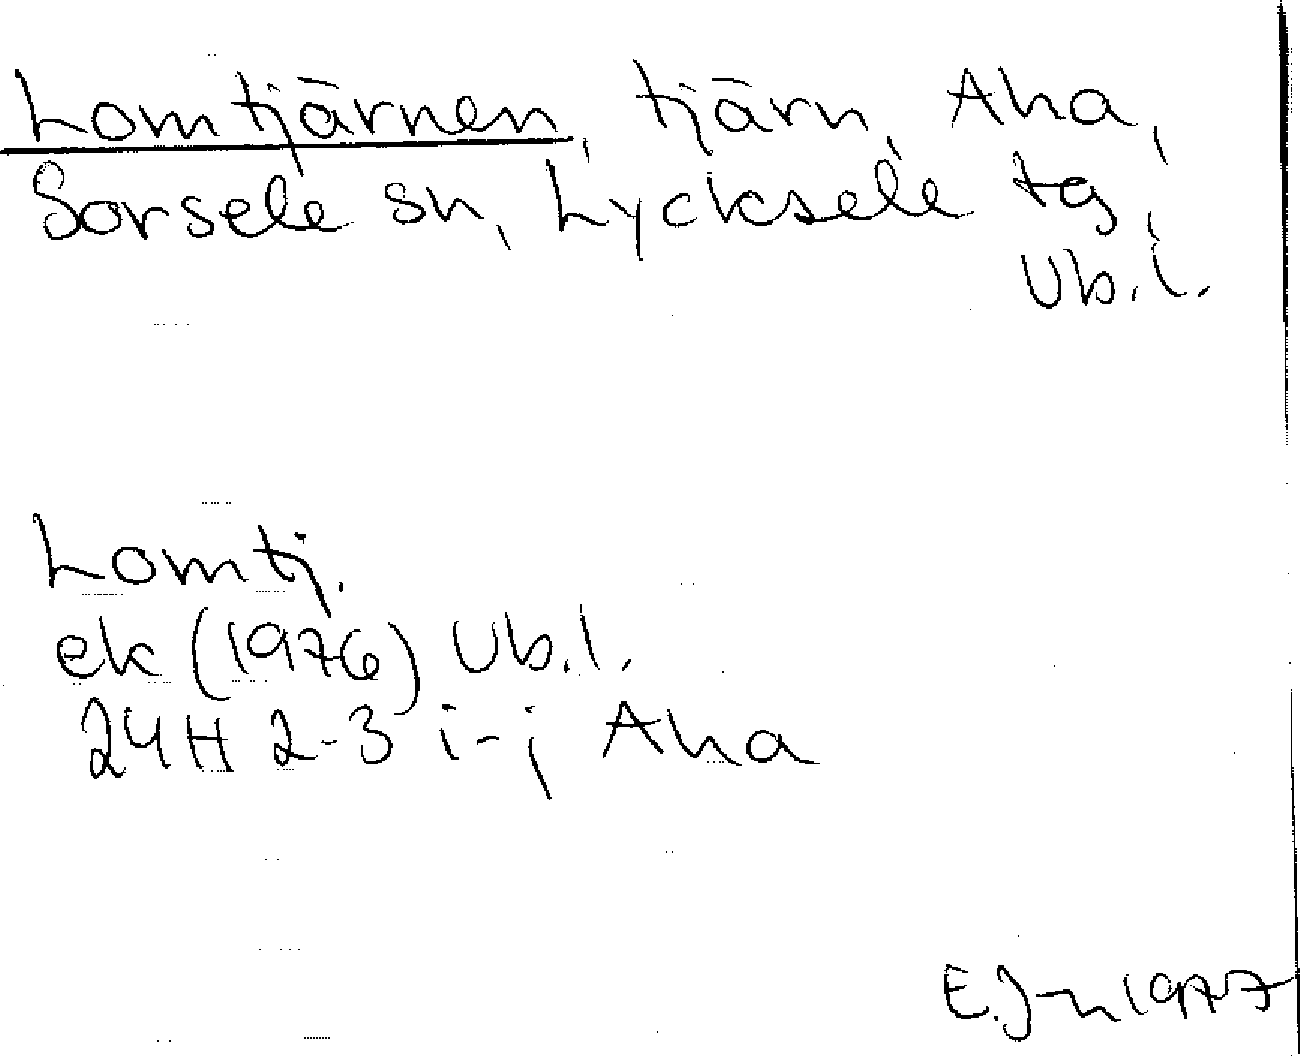 Lomtjärnen, tjärn, Aha,
Sorsele sn, Lycksele tg,
Vb.l.
Lomtj.
ek (1976) Vb.l.
24H 2-3 i-j Aha
E. J-n 1977